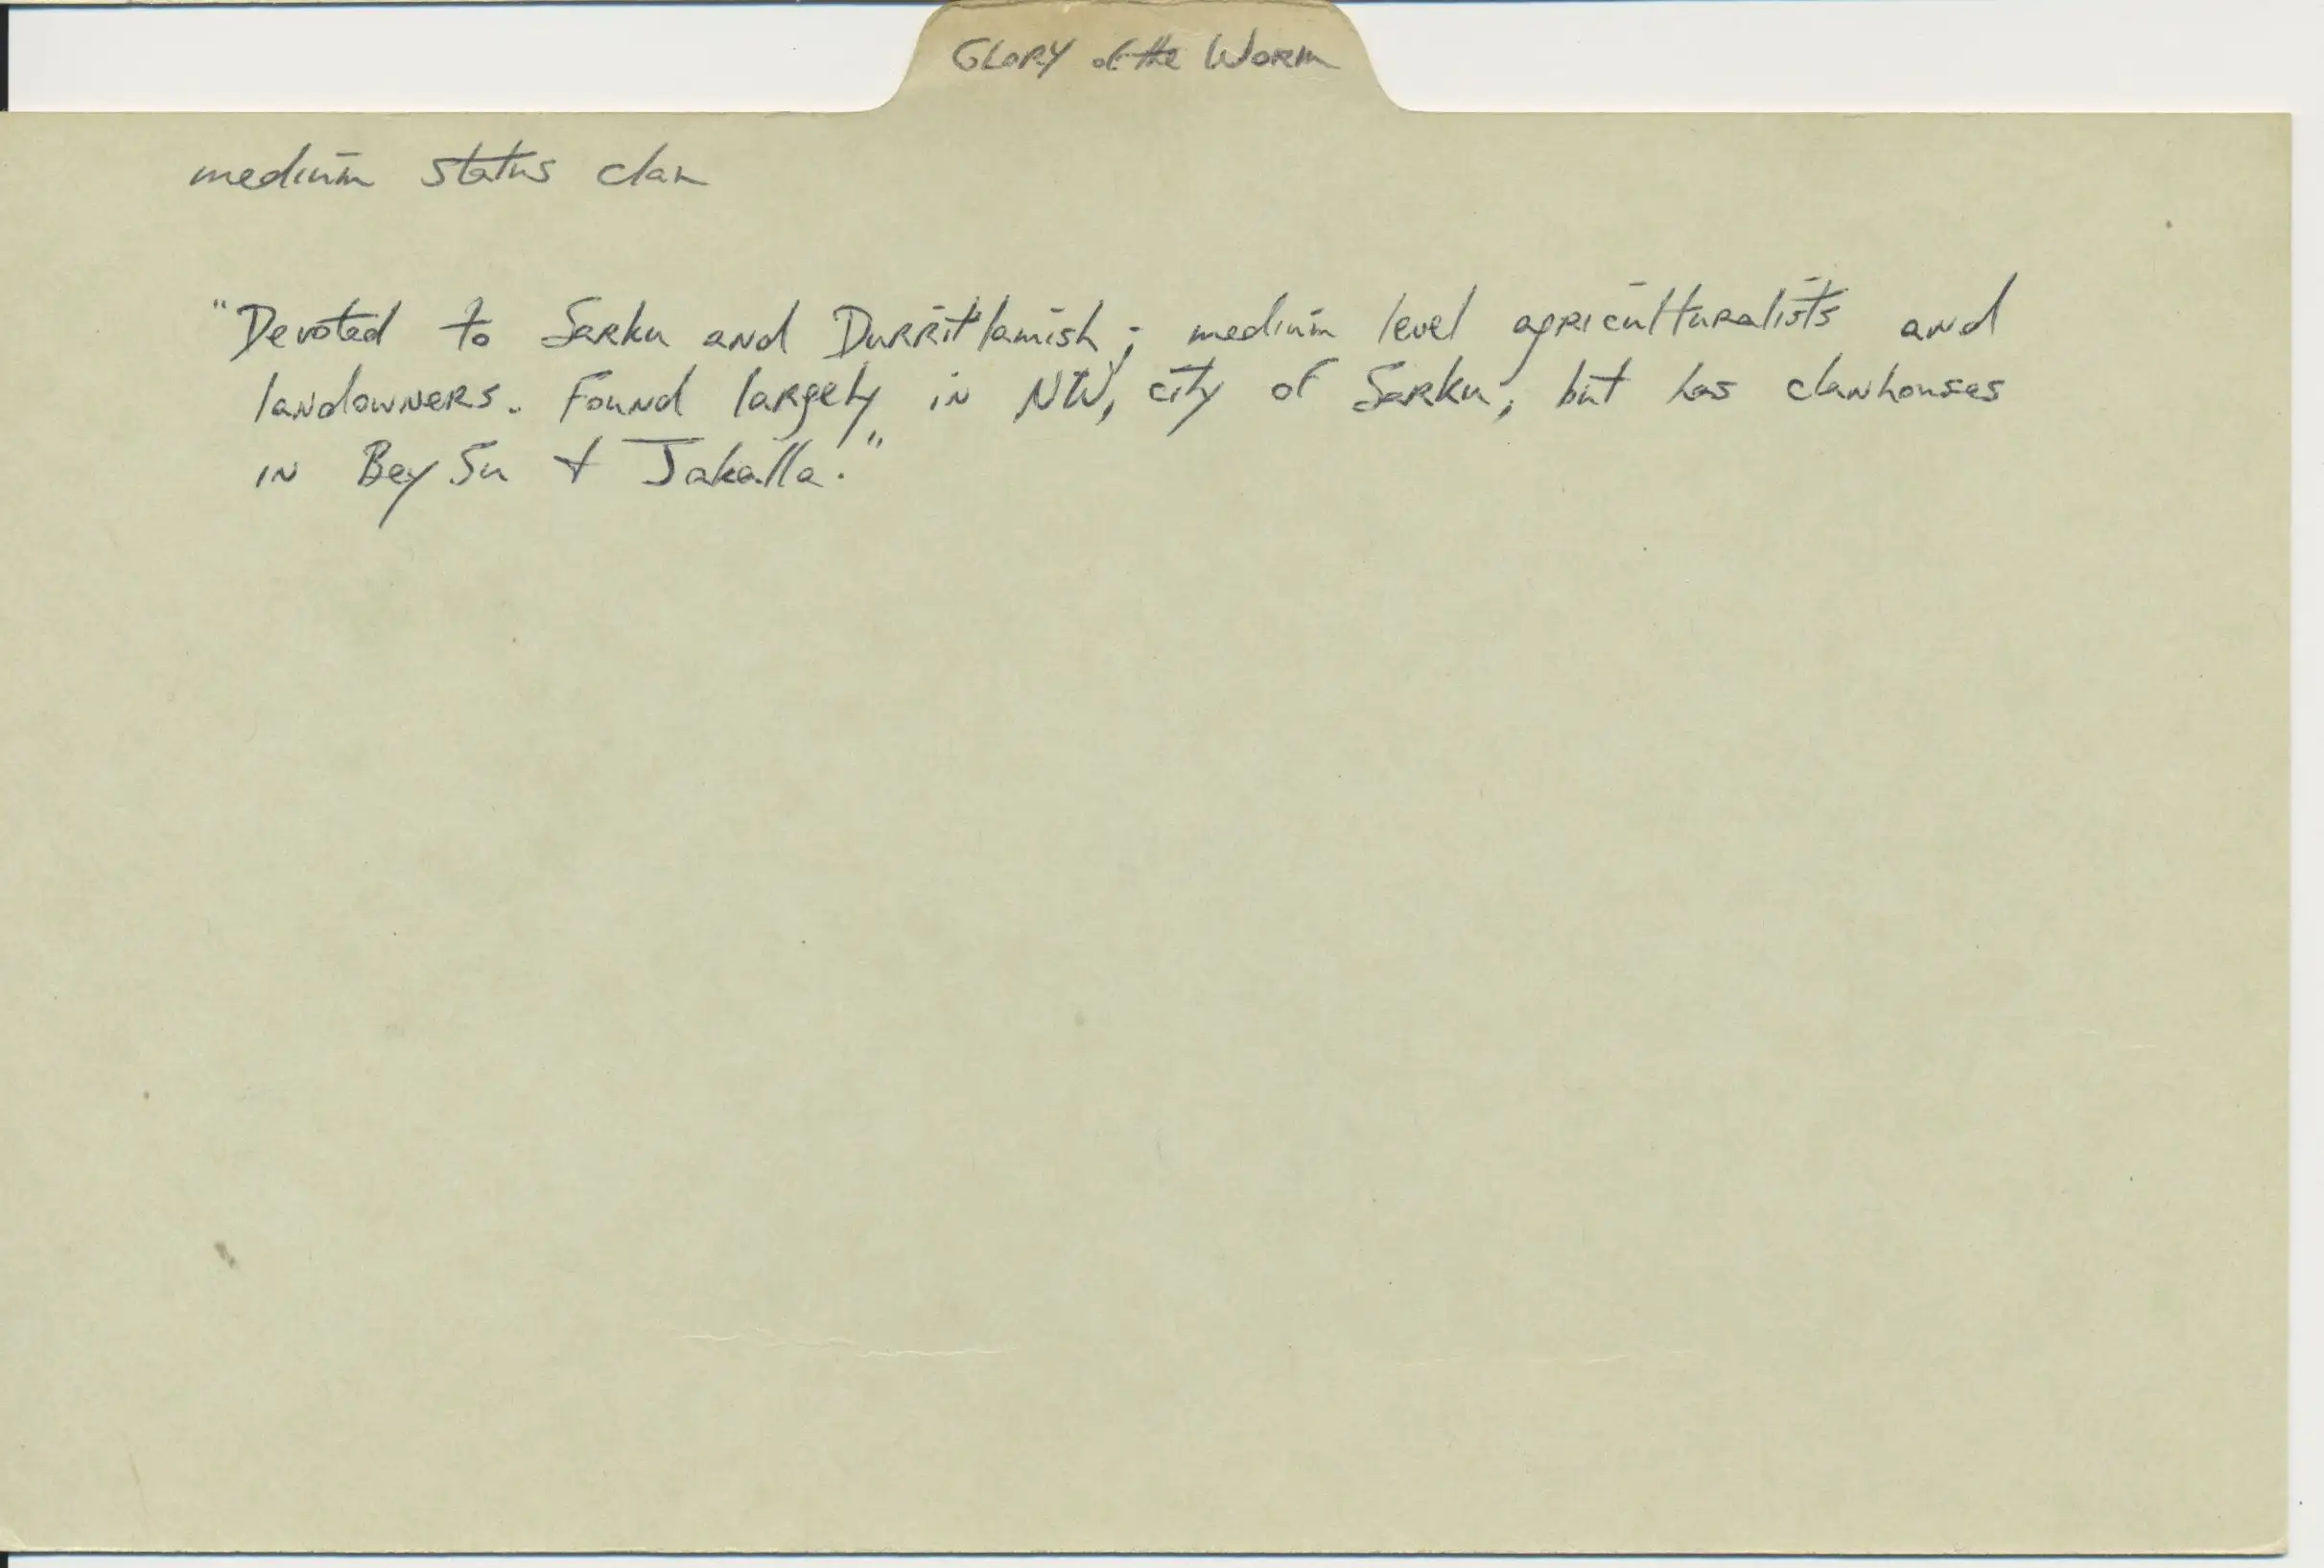 Glory of the Worm
medium status clan
"Devoted to Sarku and Durritlamish; medium level agriculturalists and
landowners. Found largely in NW, city of Sarku; but has clanhouses
in Bey Su + Jakalla."